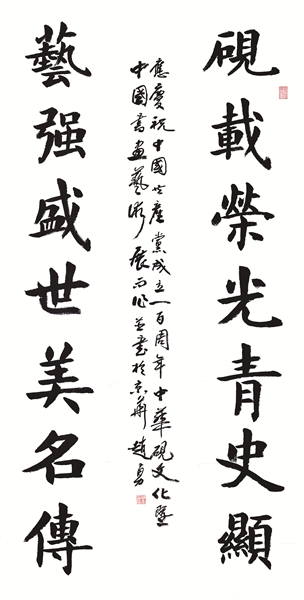 硯載榮光青史顯
應慶祝中國共產黨成立一百周年中華硯文化暨
中國書畫藝術展而作並書於京華趙勇
藝强盛世美名傳